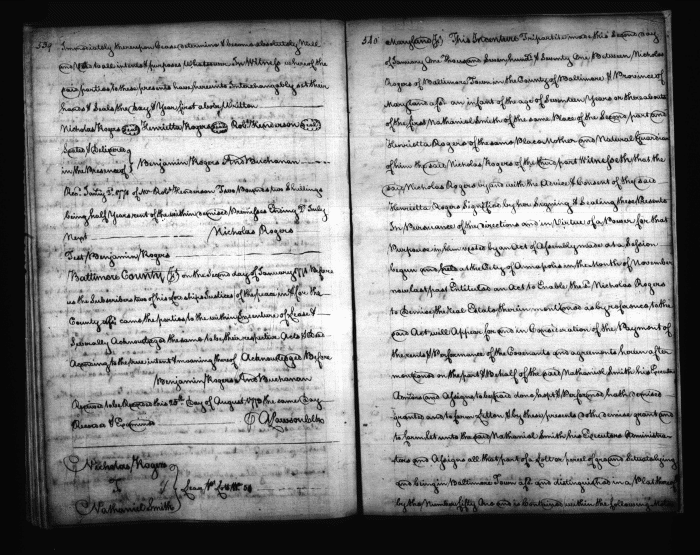 539
Immediately thereupon Cease determine & become absolutely Null
and Void to all intents & purposes Whatsoever In Witness whereof the
said parties to these presents have hereunto Interchangeably set their
hands & Seals the day & Year first above Written
Nicholas Rogers Seal Henrietta Rogers Seal Robt. Henderson Seal
Sealed & Delivered
in the Presence of } Benjamin Rogers And Buchanan
Recd. January 2d. 1771 of Mr Robt. Henderson Two Pounds two Shillings
being half Years rent of the within demised Premises Ending 2d. July
Next Nicholas Rogers
Test Benjamin Rogers
Baltimore County Ss on the Second day of January 1771 Before
us the Subscribers two of his Lordships Justices of the peace in & for the
County afd. came the parties to the within Indenture of Lease &
Severally Acknowledged the same to be their respective Acts & Deeds
According to the true intent & meaning thereof Acknowledged Before
Benjamin Rogers And Buchanan
Received to be Recorded this 25th Day of August 1771 the same Day
Recorded & Examined A Lawson Clk
Nicholas Rogers
To
Nathaniel Smith } Lease
540
Maryland Ss This Indenture Tripartite made this Second day
of January One Thousand Seven hundred & Seventy One Between Nicholas
Rogers of Baltimore Town in the County of Baltimore & Province of
Maryland afd. an infant of the age of Seventeen Years or thereabouts
of the first Nathaniel Smith of the same Place of the Second part and
Henrietta Rogers of the same Place Mother and Natural Guardian
of him the said Nicholas Rogers of the third part Witnesseth that the
said Nicholas Rogers by and with the Advice & Consent of the said
Henrietta Rogers Signified by her Signing & Sealing these Presents
In Pursuance of the Directions and in Virtue of a Power for that
Purpose in him vested by an Act of Assembly made at a Session
begun and held at the City of Annapolis in the Month of November
now last past Entituled an Act to Enable the sd. Nicholas Rogers
to Demise the Real Estate therein mentioned as by reference to the
said Act will Appear for and in Consideration of the Payment of
the rents & Performance of the Covenants and agreements herein after
mentioned on the part & Behalf of the said Nathaniel Smith his Executors
Admors and Assigns to be paid done kept & Performed hath demised
granted and to farm Letten & by these presents doth demise grant and
to farm let unto the said Nathaniel Smith his Executors Administra
tors and Assigns all that part of a Lott or parcel of ground Situate lying
and being in Baltimore Town afd. and distinguished in a Plat thereof
by the Number fifty One and is Contained within the following